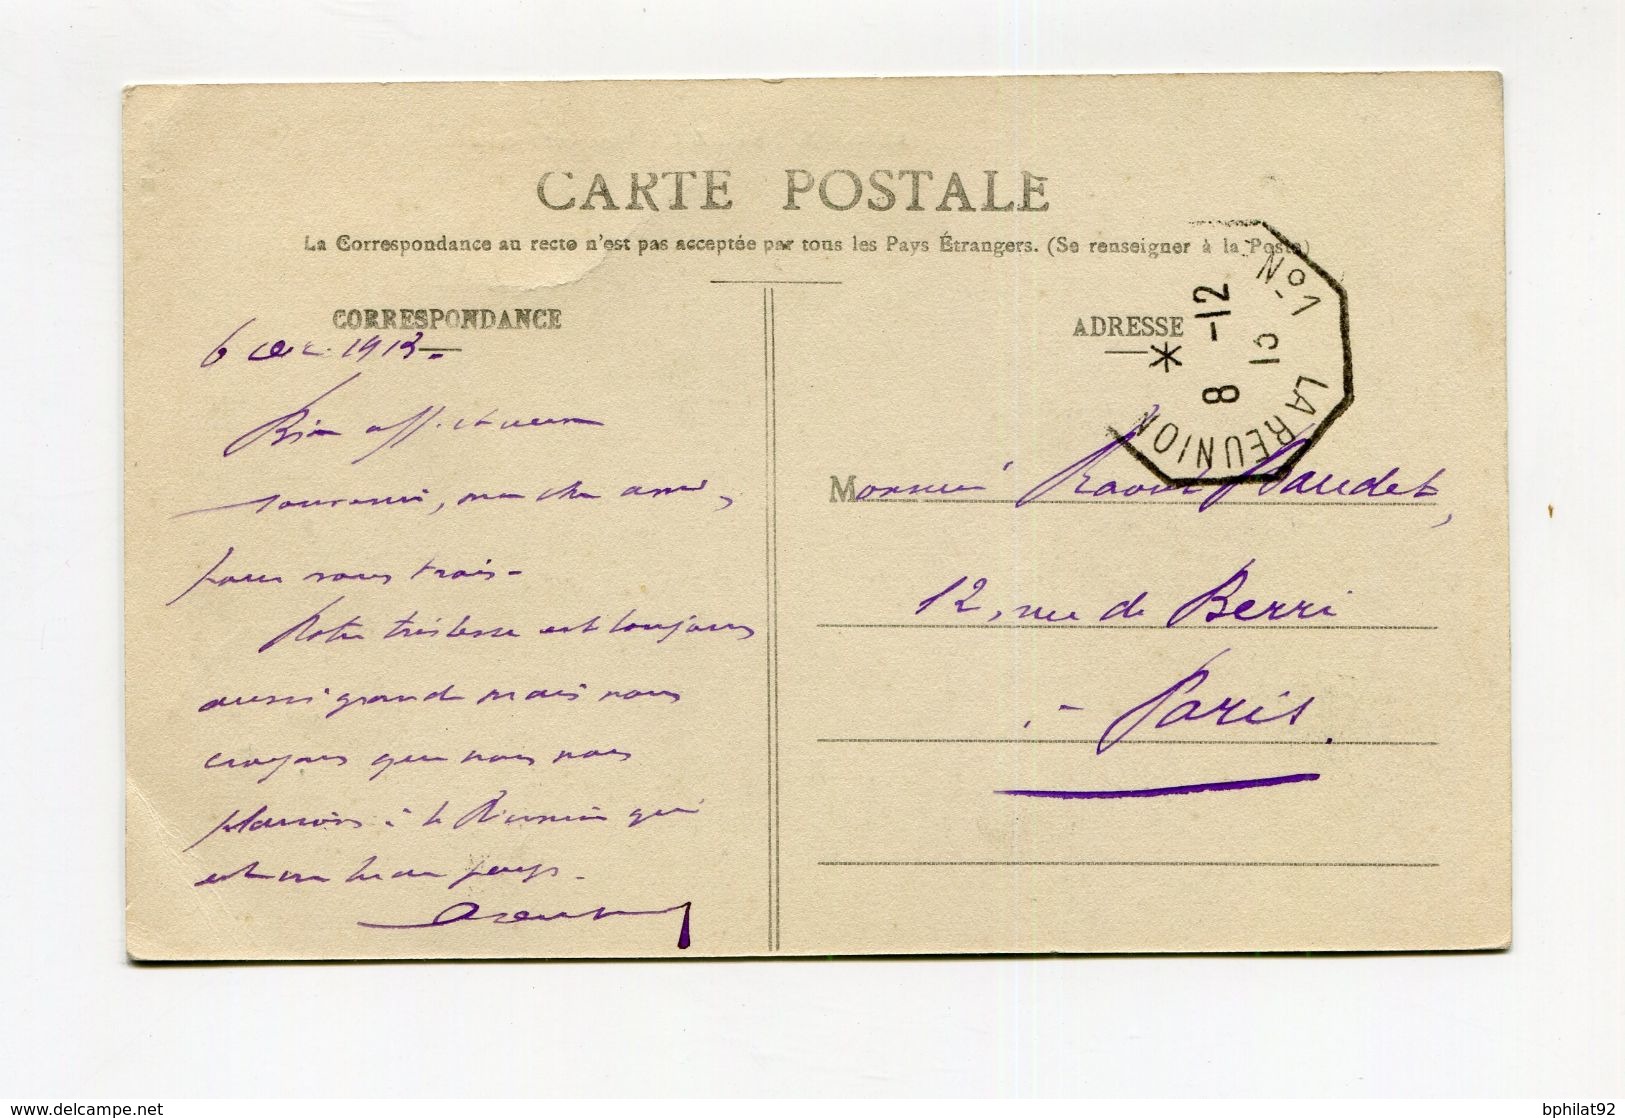 CARTE POSTALE
La Correspondance au recto n'est pas acceptée par tous les Pays Étrangers. (Se renseigner à la Poste)
CORRESPONDANCE
6 dec. 1913.
Bien affectueux
souvenir, mon cher ami,
pour vous trois.
Notre tristesse est toujours
aussi grande mais nous
croyons que nous nous
plairons à la Réunion qui
est un beau pays.
ADRESSE
Monsieur Raoul Baudet,
12, rue de Berri
à Paris.
LA REUNION N°1
8 -12
13
www.delcampe.net
bphilat92